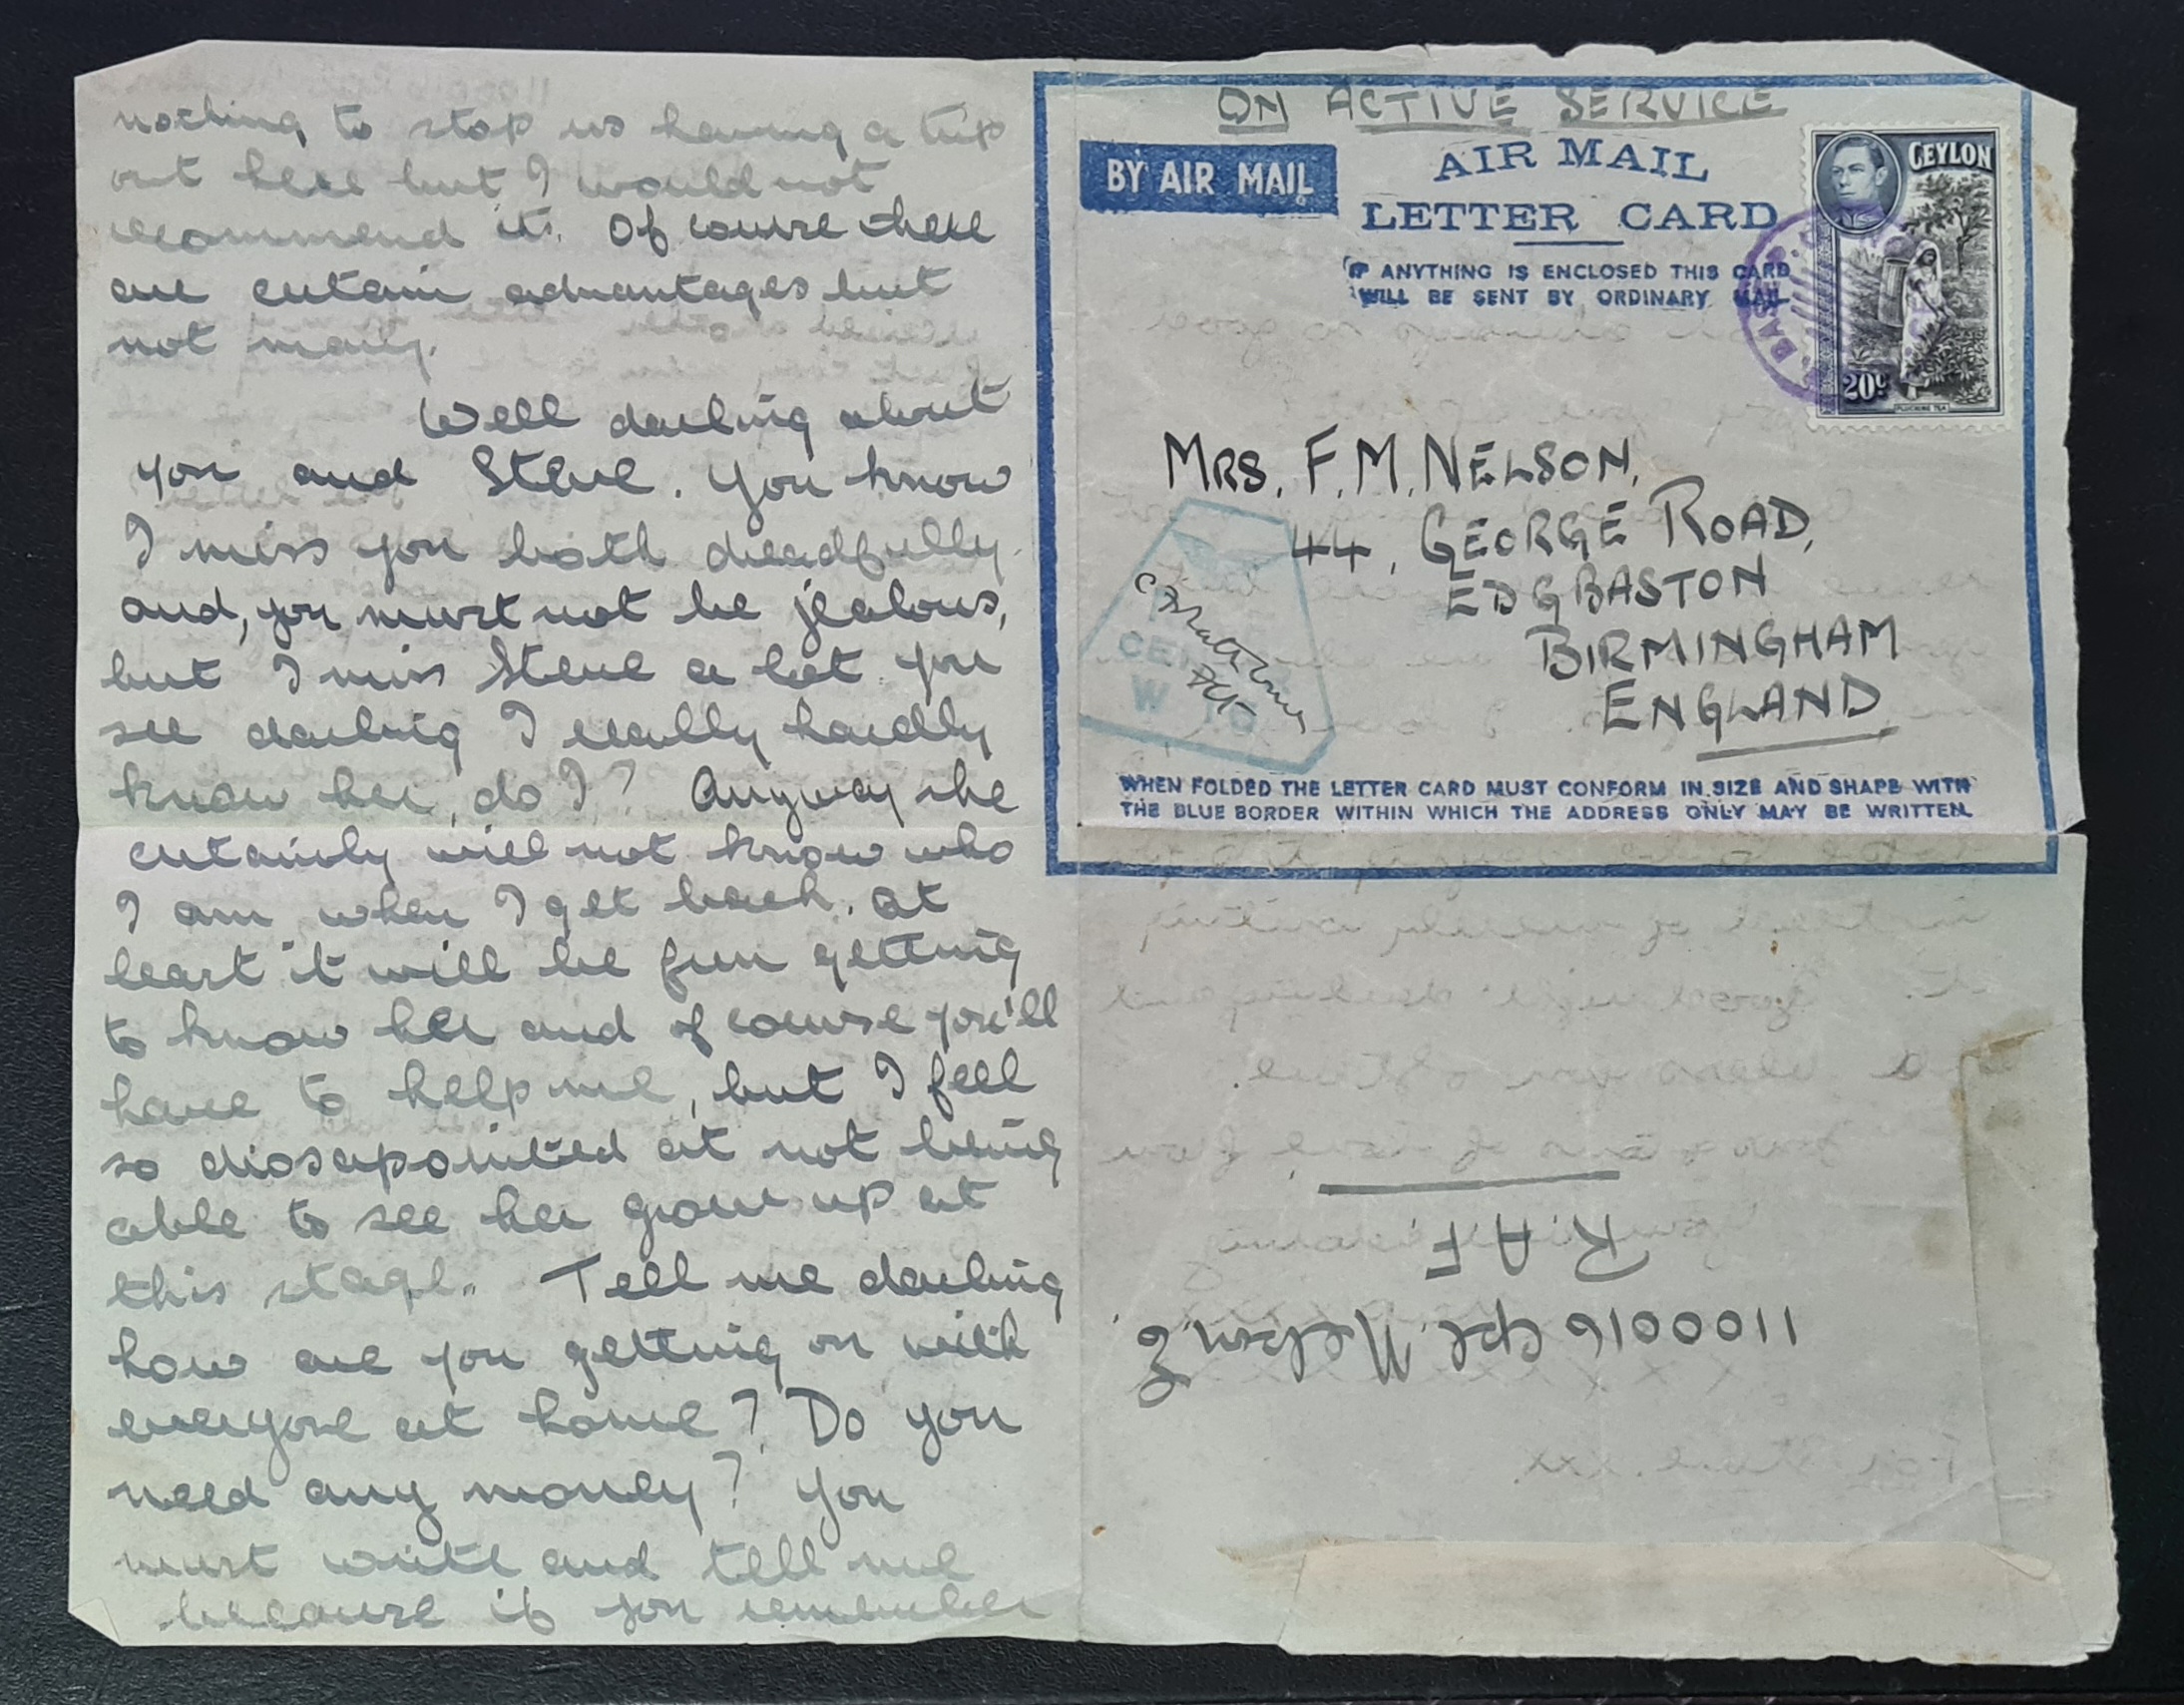 nothing to stop us having a trip
out here but I would not
recommend it. Of course there
are certain advantages but
not many.
Well darling about
you and Steve. You know
I miss you both dreadfully
and, you must not be jealous,
but I miss Steve a lot. You
see darling I really hardly
know her, do I? Anyway she
certainly will not know who
I am when I get back. At
least it will be fun getting
to know her and of course you'll
have to help me, but I feel
so dissapointed at not being
able to see her grow up at
this stage. Tell me darling
how are you getting on with
everyone at home? Do you
need any money? You
must write and tell me
because if you remember
ON ACTIVE SERVICE
BY AIR MAIL
AIR MAIL
LETTER CARD
IF ANYTHING IS ENCLOSED THIS CARD
WILL BE SENT BY ORDINARY MAIL
CEYLON
20c
PLUCKING TEA
BASE
MRS. F. M. NELSON,
44, GEORGE ROAD,
EDGBASTON
BIRMINGHAM
ENGLAND
WHEN FOLDED THE LETTER CARD MUST CONFORM IN SIZE AND SHAPE WITH
THE BLUE BORDER WITHIN WHICH THE ADDRESS ONLY MAY BE WRITTEN.
1100016 Cpl. Nelson. F.
R.A.F.